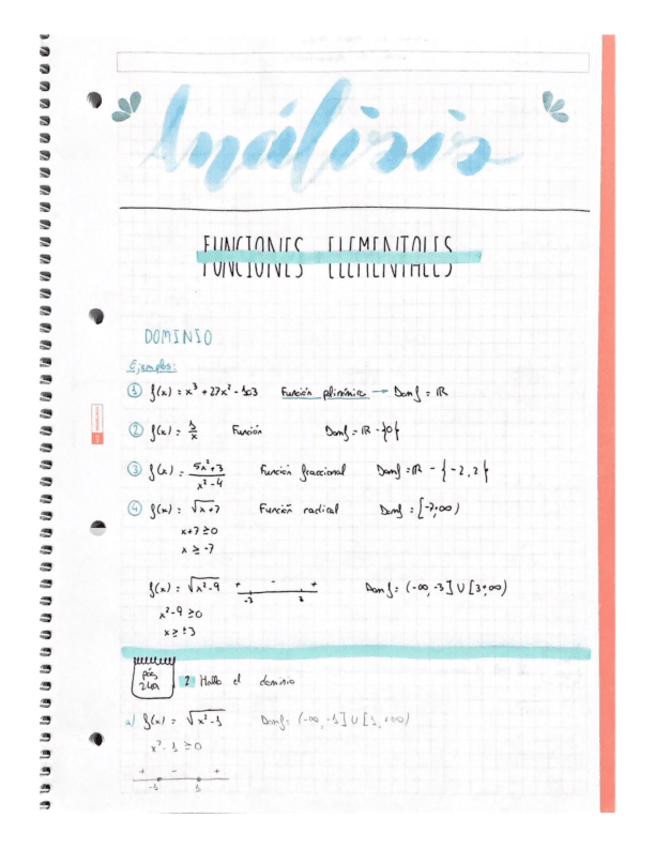 Análisis
FUNCIONES ELEMENTALES
DOMINIO
Ejemplos:
① f(x) = x³ + 27x² - 103 Función plinómica → Dom f = ℝ
② f(x) = 1/x Función Dom f = ℝ - {0}
③ f(x) = (5x² + 3)/(x² - 4) Función fraccional Dom f = ℝ - {-2, 2}
④ f(x) = √(x+7) Función radical Dom f = [-7, ∞)
x + 7 ≥ 0
x ≥ -7
f(x) = √(x² - 9) + - + Dom f = (-∞, -3] ∪ [3, +∞)
-3 3
x² - 9 ≥ 0
x ≥ ±3
pág
2 Halla el dominio
a) f(x) = √(x² - 1) Dom f = (-∞, -1] ∪ [1, +∞)
x² - 1 ≥ 0
+ - +
-1 1